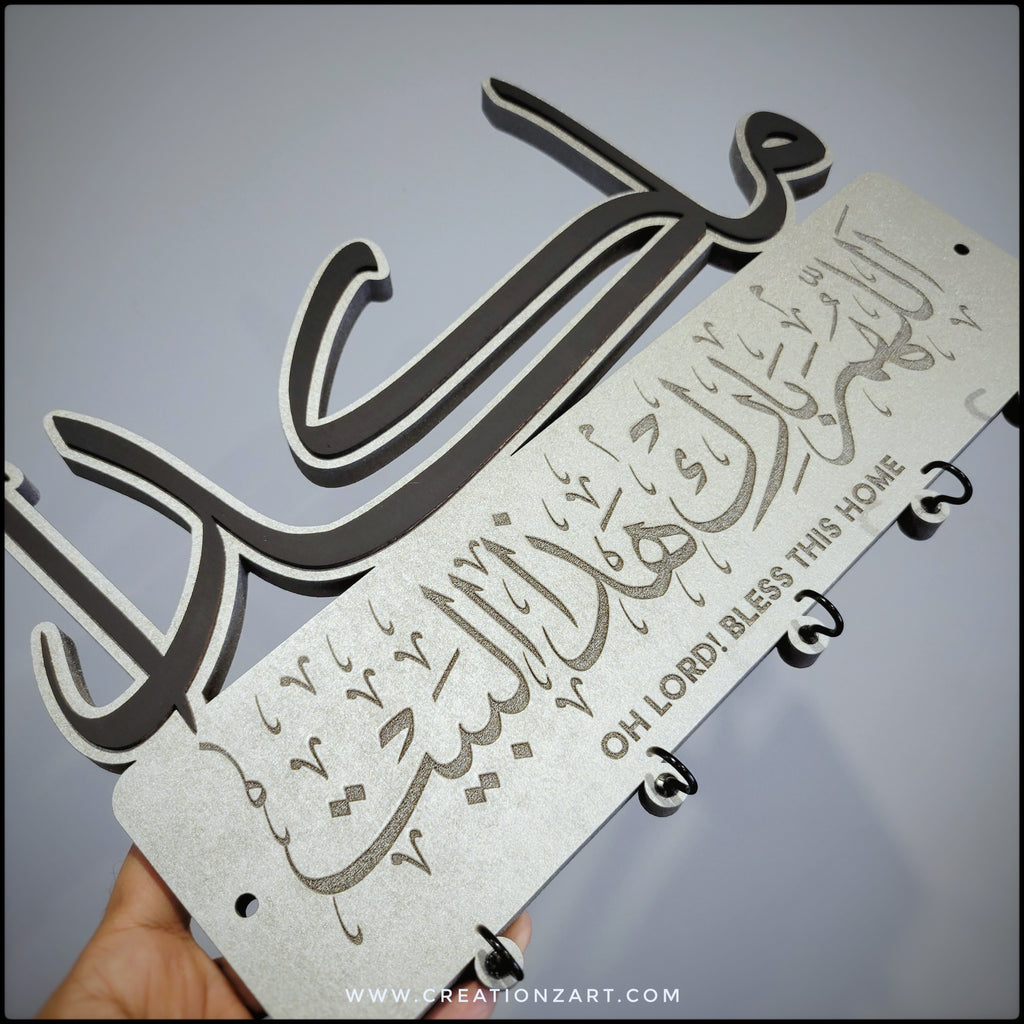 اللّهُمَّ بَارِك هَذَا البَيْت
OH LORD! BLESS THIS HOME
WWW.CREATIONZART.COM